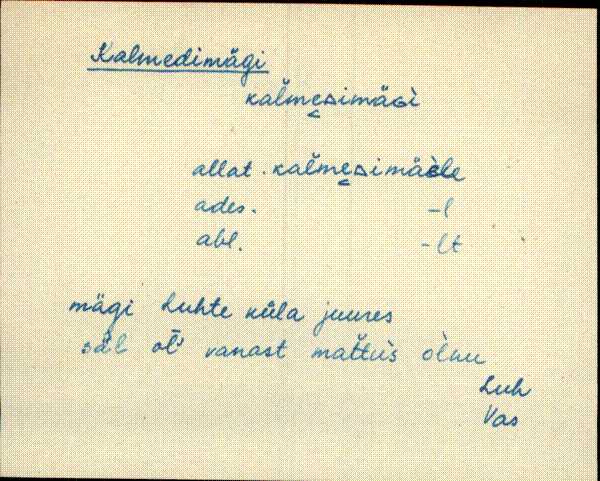 Kalmedimägi
kal̆me̬ᴅimäɢì
allat. kal̆me̬ᴅimäèle
ades. -l
abl. -lt
mägi Luhte küla juures
säl ol̆ʹ vanast mat̆tùs òlnu
Luh
Vas